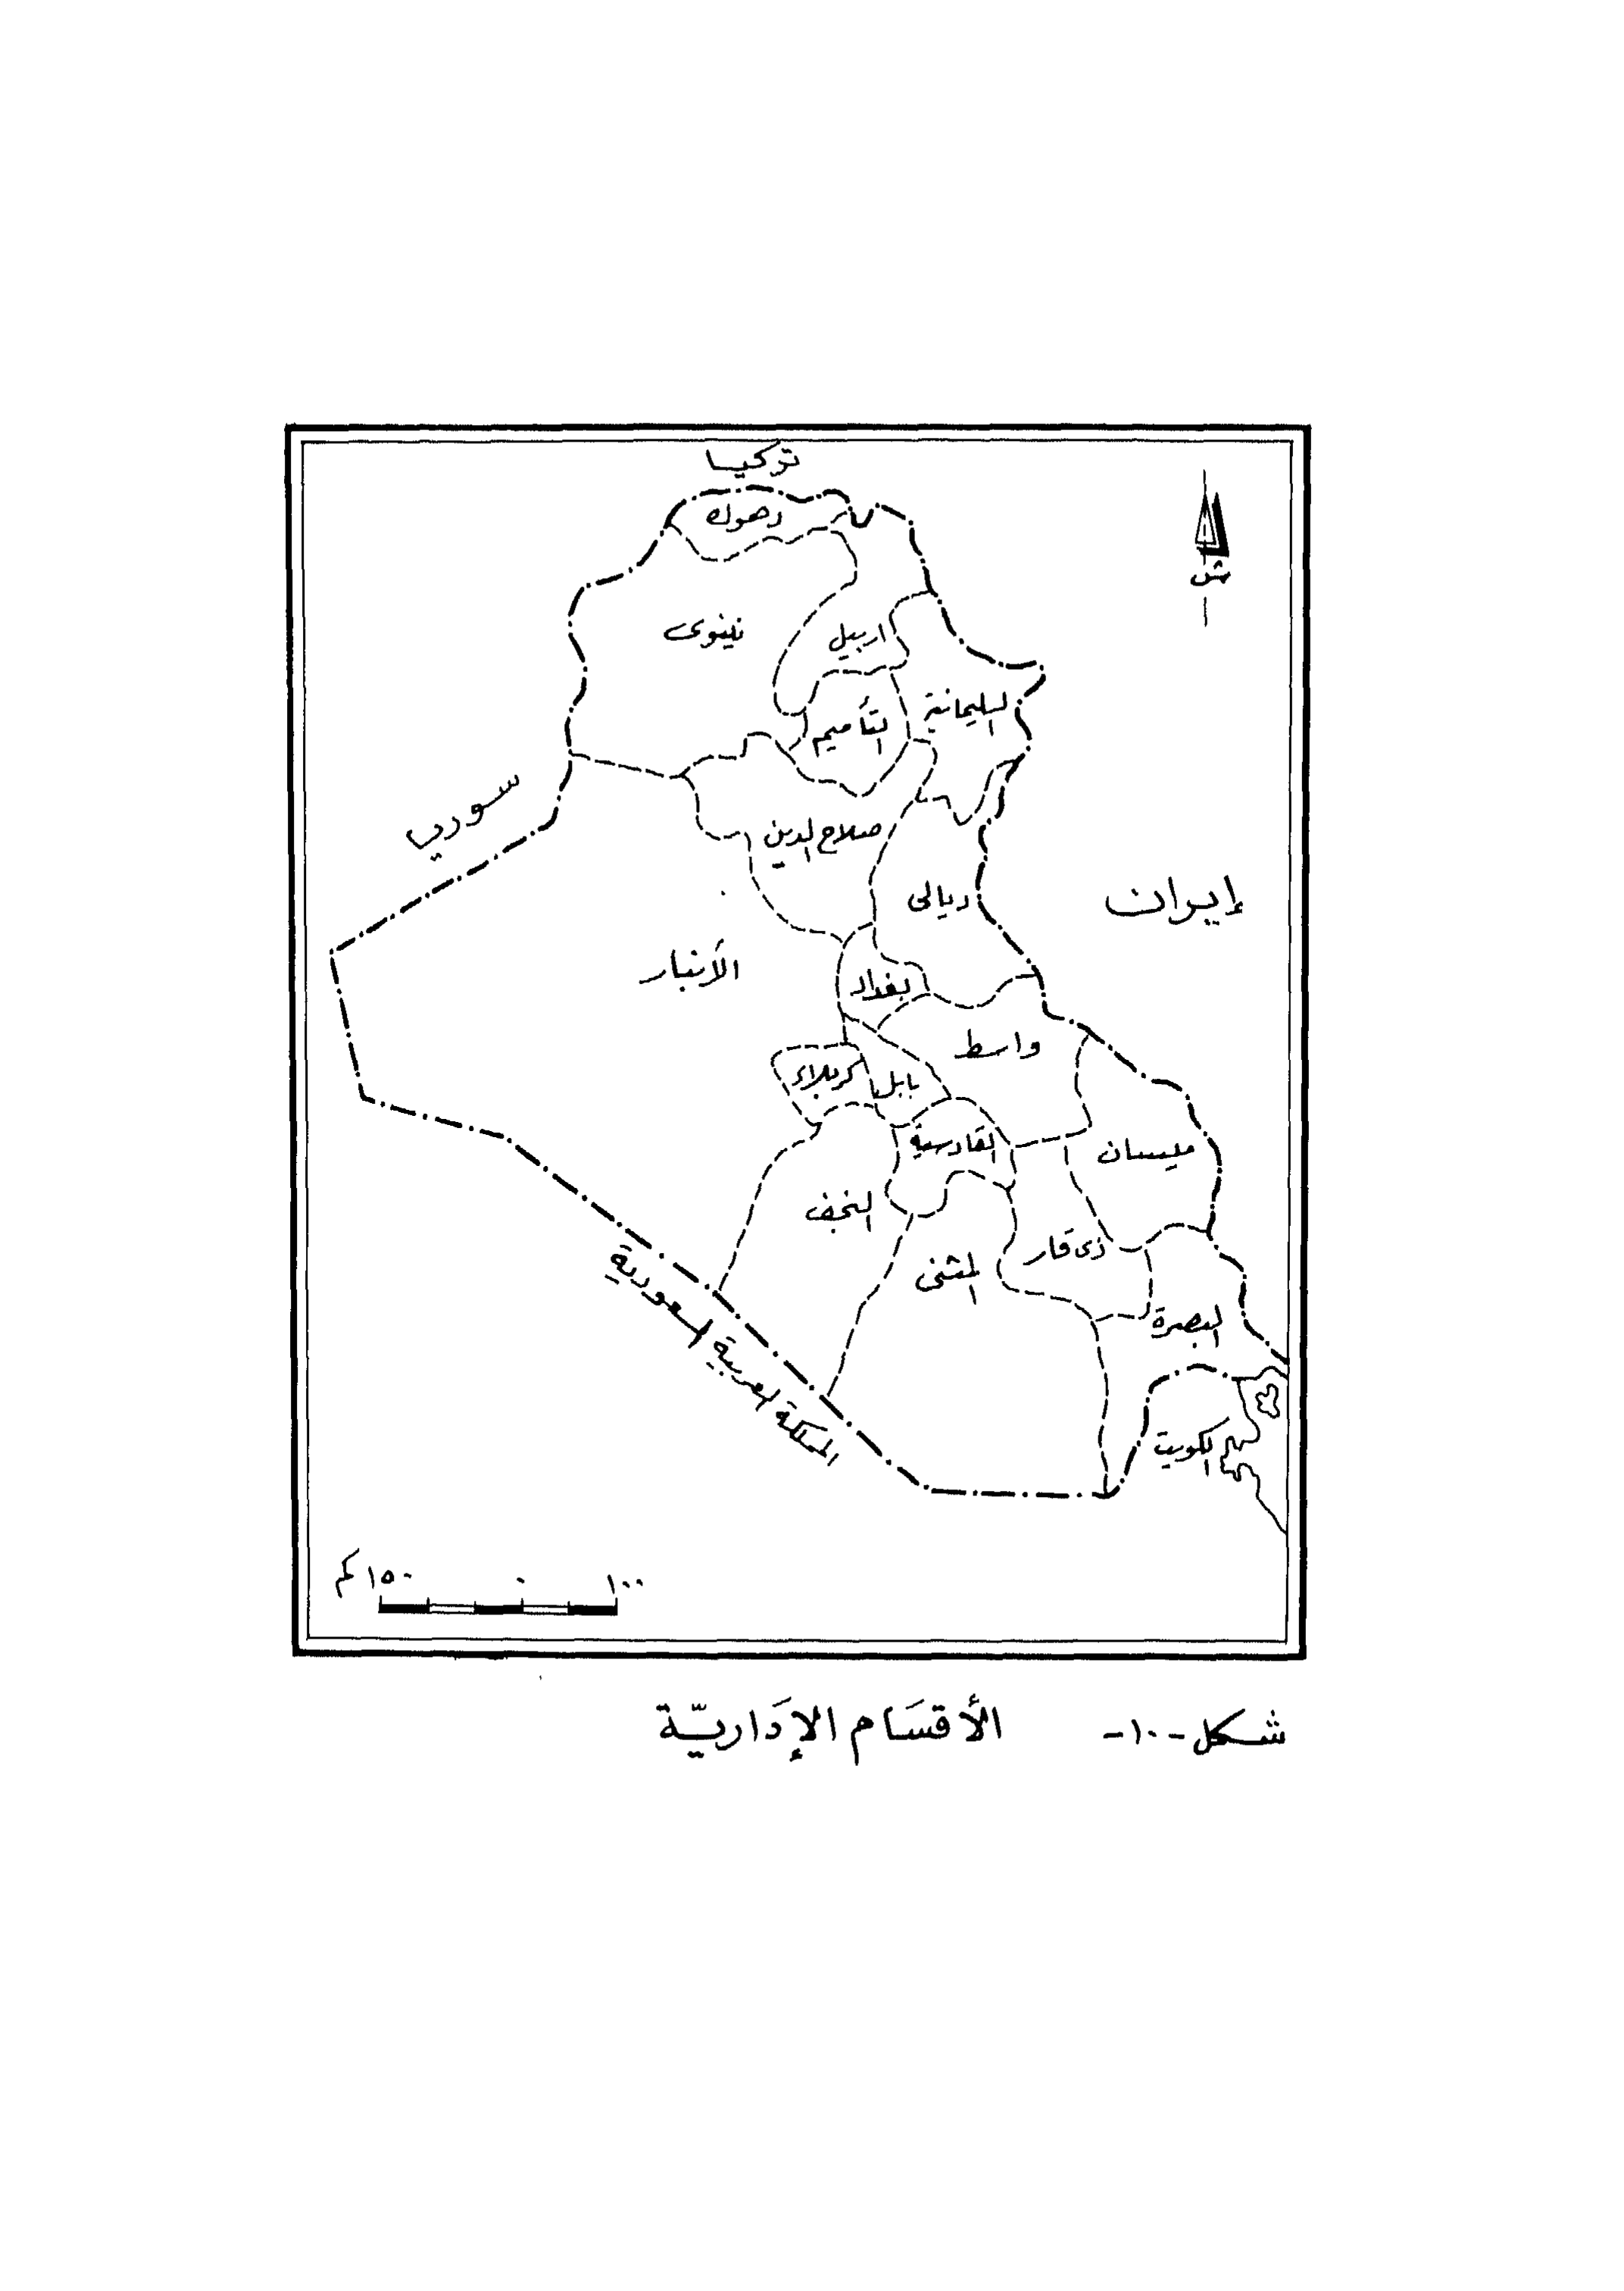 تركيا
دهوك
ش
نينوى
اربيل
السليمانية
التأميم
سوريا
صلاح الدين
ديالى
إيران
الأنبار
بغداد
واسط
كربلاء
بابل
القادسية
ميسان
النجف
ذى قار
المثنى
البصرة
المملكة العربية السعودية
الكويت
١٠٠ ٠ ١٥٠ كم
شكل -١٠- الأقسَام الإدَاريّة